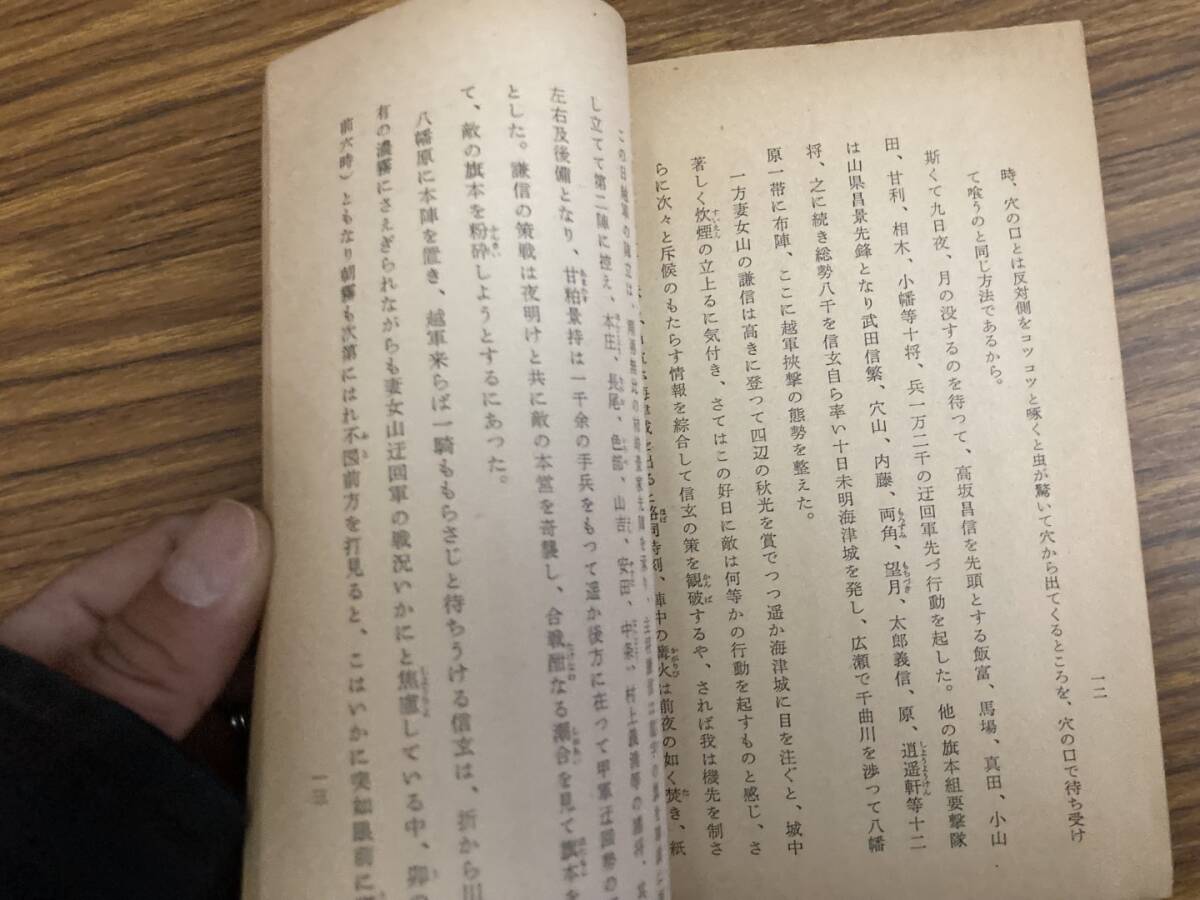 時、穴の口とは反対側をコツコツと啄くと虫が驚いて穴から出てくるところを、穴の口で待ち受け
て喰うのと同じ方法であるから。
斯くて九日夜、月の没するのを待つて、高坂昌信を先頭とする飯富、馬場、真田、小山
田、甘利、相木、小幡等十将、兵一万二千の迂回軍先づ行動を起した。他の旗本組要撃隊
は山県昌景先鋒となり武田信繁、穴山、内藤、両角、望月、太郎義信、原、逍遥軒等十二
将、之に続き総勢八千を信玄自ら率い十日未明海津城を発し、広瀬で千曲川を渉つて八幡
原一帯に布陣、ここに越軍挾撃の態勢を整えた。
一方妻女山の謙信は高きに登つて四辺の秋光を賞でつつ遥か海津城に目を注ぐと、城中
著しく炊煙の立上るに気付き、さてはこの好日に敵は何等かの行動を起すものと感じ、さ
らに次々と斥候のもたらす情報を綜合して信玄の策を観破するや、されば我は機先を制さ
海津城を出るに略同時刻、陣中の篝火は前夜の如く焚き、紙
一二
この日越軍の
し立てて第二陣に控え、本庄、長尾、色部、山吉、安田、中条、村上義清等の諸将、其
左右及後備となり、甘粕景持は一千余の手兵をもつて遥か後方に在つて甲軍迂回勢の
とした。謙信の策戦は夜明けと共に敵の本営を奇襲し、合戦酣なる潮合を見て旗本を
て、敵の旗本を粉砕しようとするにあつた。
八幡原に本陣を置き、越軍来らば一騎ももらさじと待ちうける信玄は、折から川
有の濃霧にさえぎられながらも妻女山迂回軍の戦況いかにと焦慮している中、卯の
前六時）ともなり朝霧も次第にはれ不図前方を打見ると、こはいかに突如眼前に
一三